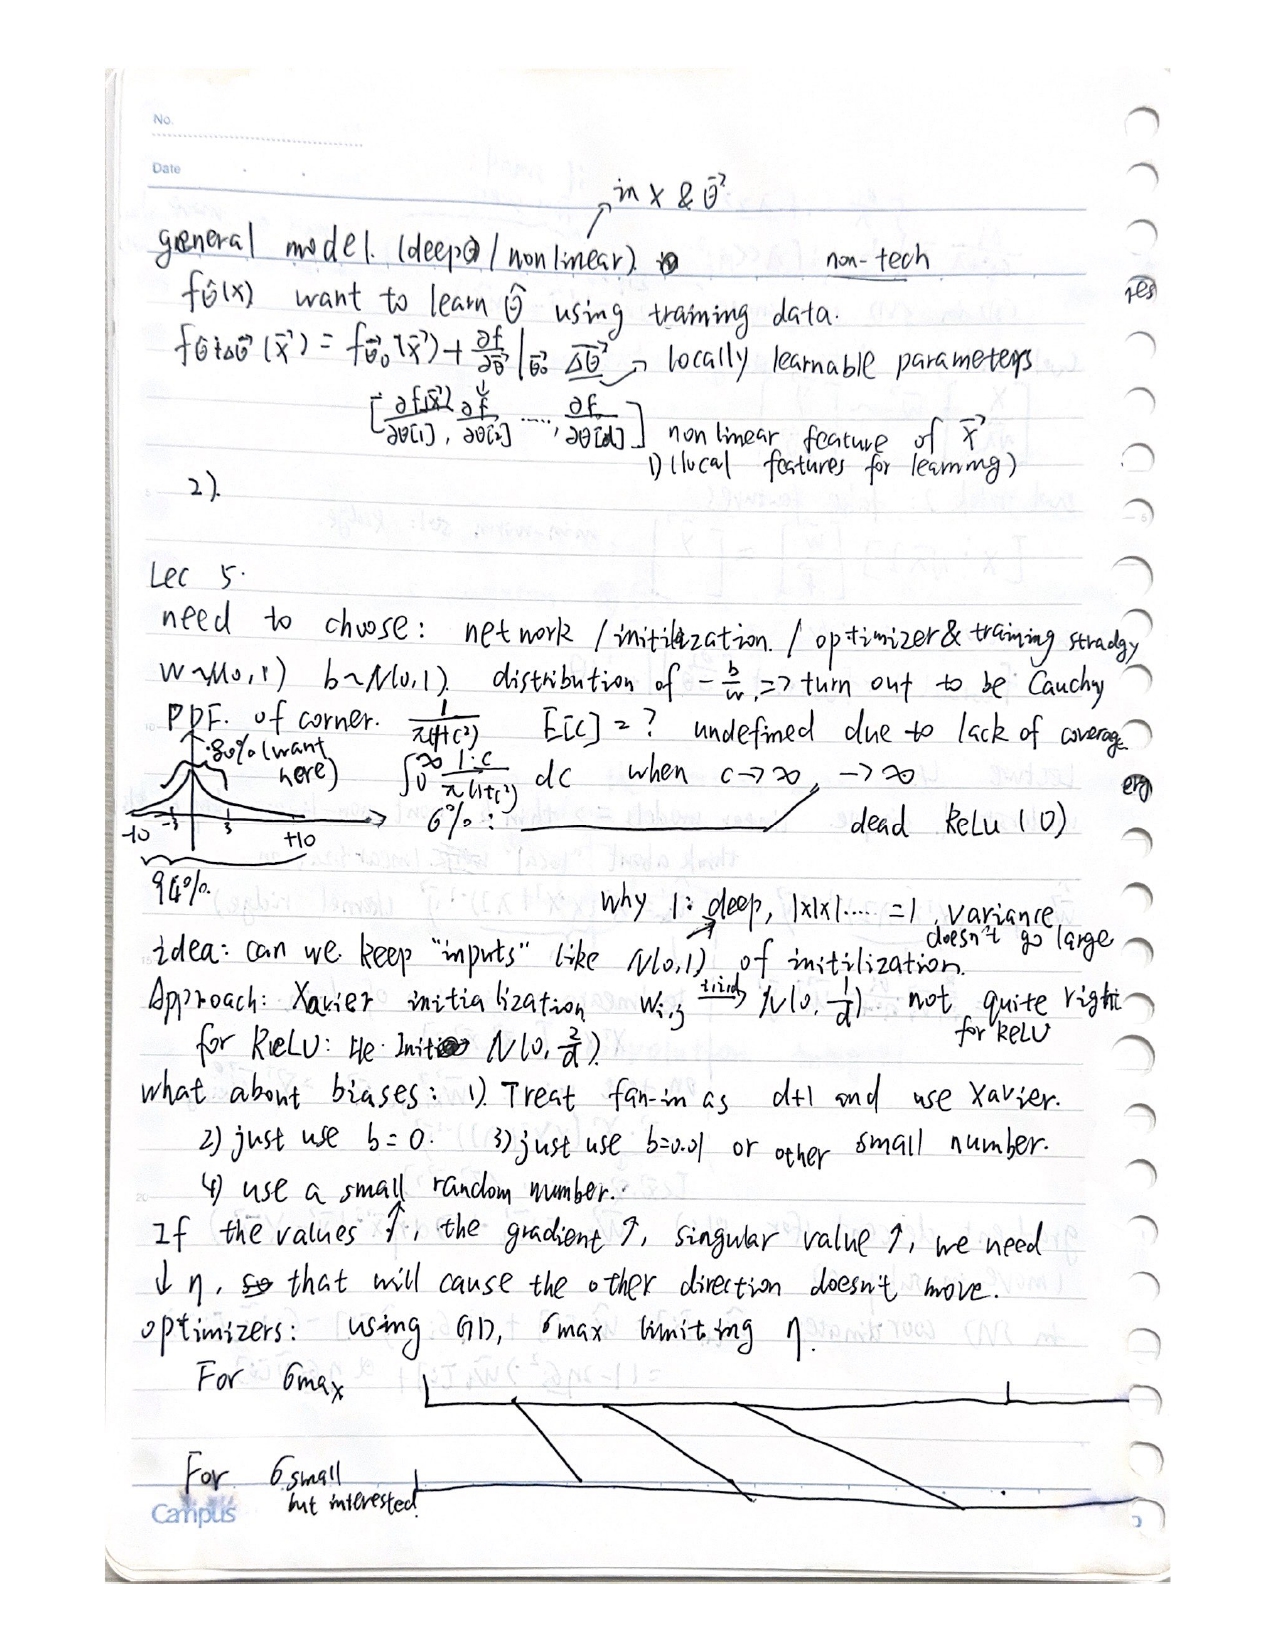 No.
Date
in X & θ⃗
general model. (deep / nonlinear).
non-tech
fθ̂(x) want to learn θ̂ using training data.
fθ̂+Δθ⃗ (x⃗) = fθ⃗₀(x⃗) + ∂f/∂θ⃗ |θ⃗₀ Δθ⃗ → locally learnable parameters
[∂f(x⃗)/∂θ[1], ∂f/∂θ[2] ....., ∂f/∂θ[d]] nonlinear feature of x⃗
1) (local features for learning)
2).
Lec 5.
need to choose: network / initilization. / optimizer & training stradgy
W ~ N(0,1) b ~ N(0,1). distribution of -b/w, => turn out to be Cauchy
PDF. of corner. 1/π(1+c²) E[c] = ? undefined due to lack of coverage
80% (want here)
∫₀^∞ 1·c/π(1+c²) dc when c → ∞, → ∞
-10 -3 3 +10
6% : dead ReLu (0)
94%.
Why 1: deep, 1x1x1.... = 1, variance doesn't go large
idea: can we keep "inputs" like N(0,1) of initilization.
Approach: Xavier initialization Wi,j iid→ N(0, 1/d) not quite right for ReLU
for ReLU: He Init N(0, 2/d).
what about biases: 1). Treat fan-in as d+1 and use Xavier.
2) just use b = 0. 3) just use b=0.01 or other small number.
4) use a small random number.
If the values ↑, the gradient ↑, singular value ↑, we need
↓ η, that will cause the other direction doesn't move.
optimizers: using GD, σmax limiting η.
For σmax
For σsmall
but interested
Campus